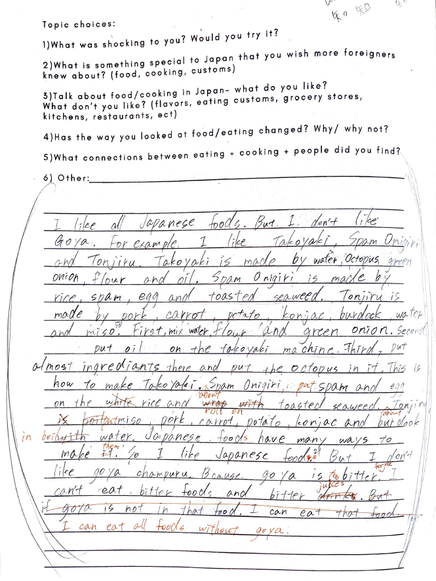 Topic choices:
1)What was shocking to you? Would you try it?
2)What is something special to Japan that you wish more foreigners
knew about? (food, cooking, customs)
3)Talk about food/cooking in Japan- what do you like?
What don't you like? (flavors, eating customs, grocery stores,
kitchens, restaurants, ect)
4)Has the way you looked at food/eating changed? Why/ why not?
5)What connections between eating + cooking + people did you find?
6) Other:
I like all Japanese foods. But I don't like
Goya. For example, I like Takoyaki, Spam Onigiri
and Tonjiru. Takoyaki is made by water, Octopus, green
onion, flour and oil. Spam Onigiri is made by
rice, spam, egg and toasted seaweed. Tonjiru is
made by pork, carrot, potato, konjac, burdock water
and miso. First, mix water, flour and green onion. Second
put oil on the takoyaki machine. Third, put
almost ingrediants there and put the octopus in it. This is
how to make Takoyaki. Spam Onigiri, put spam and egg
on the white rice and wrap with toasted seaweed. Tonjiru
roll on
is miso, pork, carrot, potato, konjac and burdock
in water. Japanese foods have many ways to
make it. So I like Japanese foods. But I don't
like goya champuru. Because goya is too bitter. I
juices
can't eat bitter foods and bitter drinks. But
if goya is not in that food, I can eat that food.
I can eat all foods without goya.